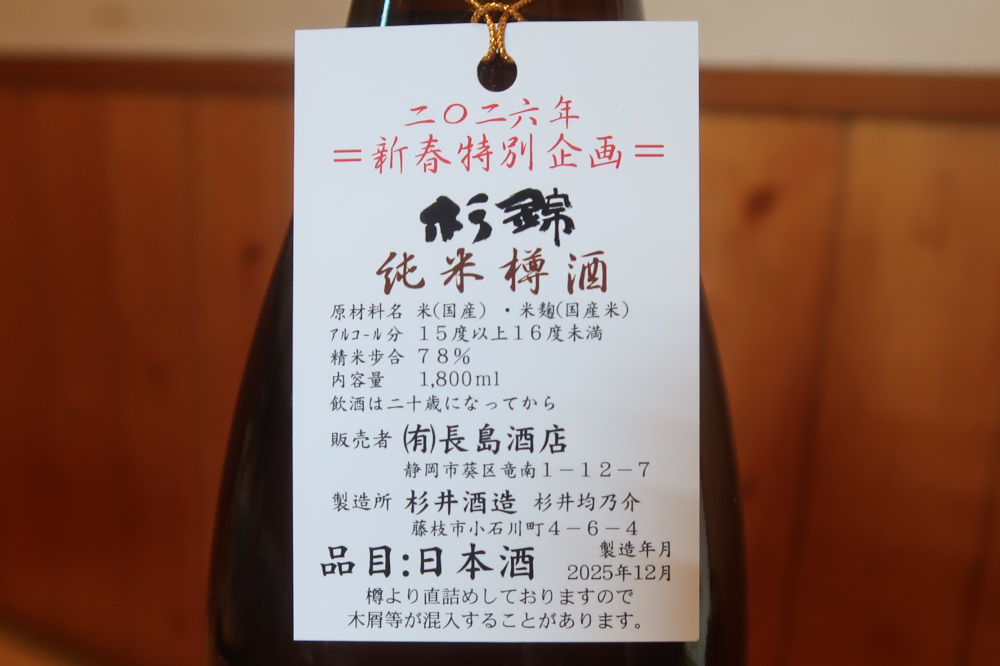 二〇二六年
＝新春特別企画＝
杉錦
純米樽酒
原材料名 米(国産)・米麹(国産米)
ｱﾙｺｰﾙ分 15度以上16度未満
精米歩合 78%
内容量 1,800ml
飲酒は二十歳になってから
販売者 ㈲長島酒店
静岡市葵区竜南1－12－7
製造所 杉井酒造 杉井均乃介
藤枝市小石川町4－6－4
製造年月
品目:日本酒 2025年12月
樽より直詰めしておりますので
木屑等が混入することがあります。